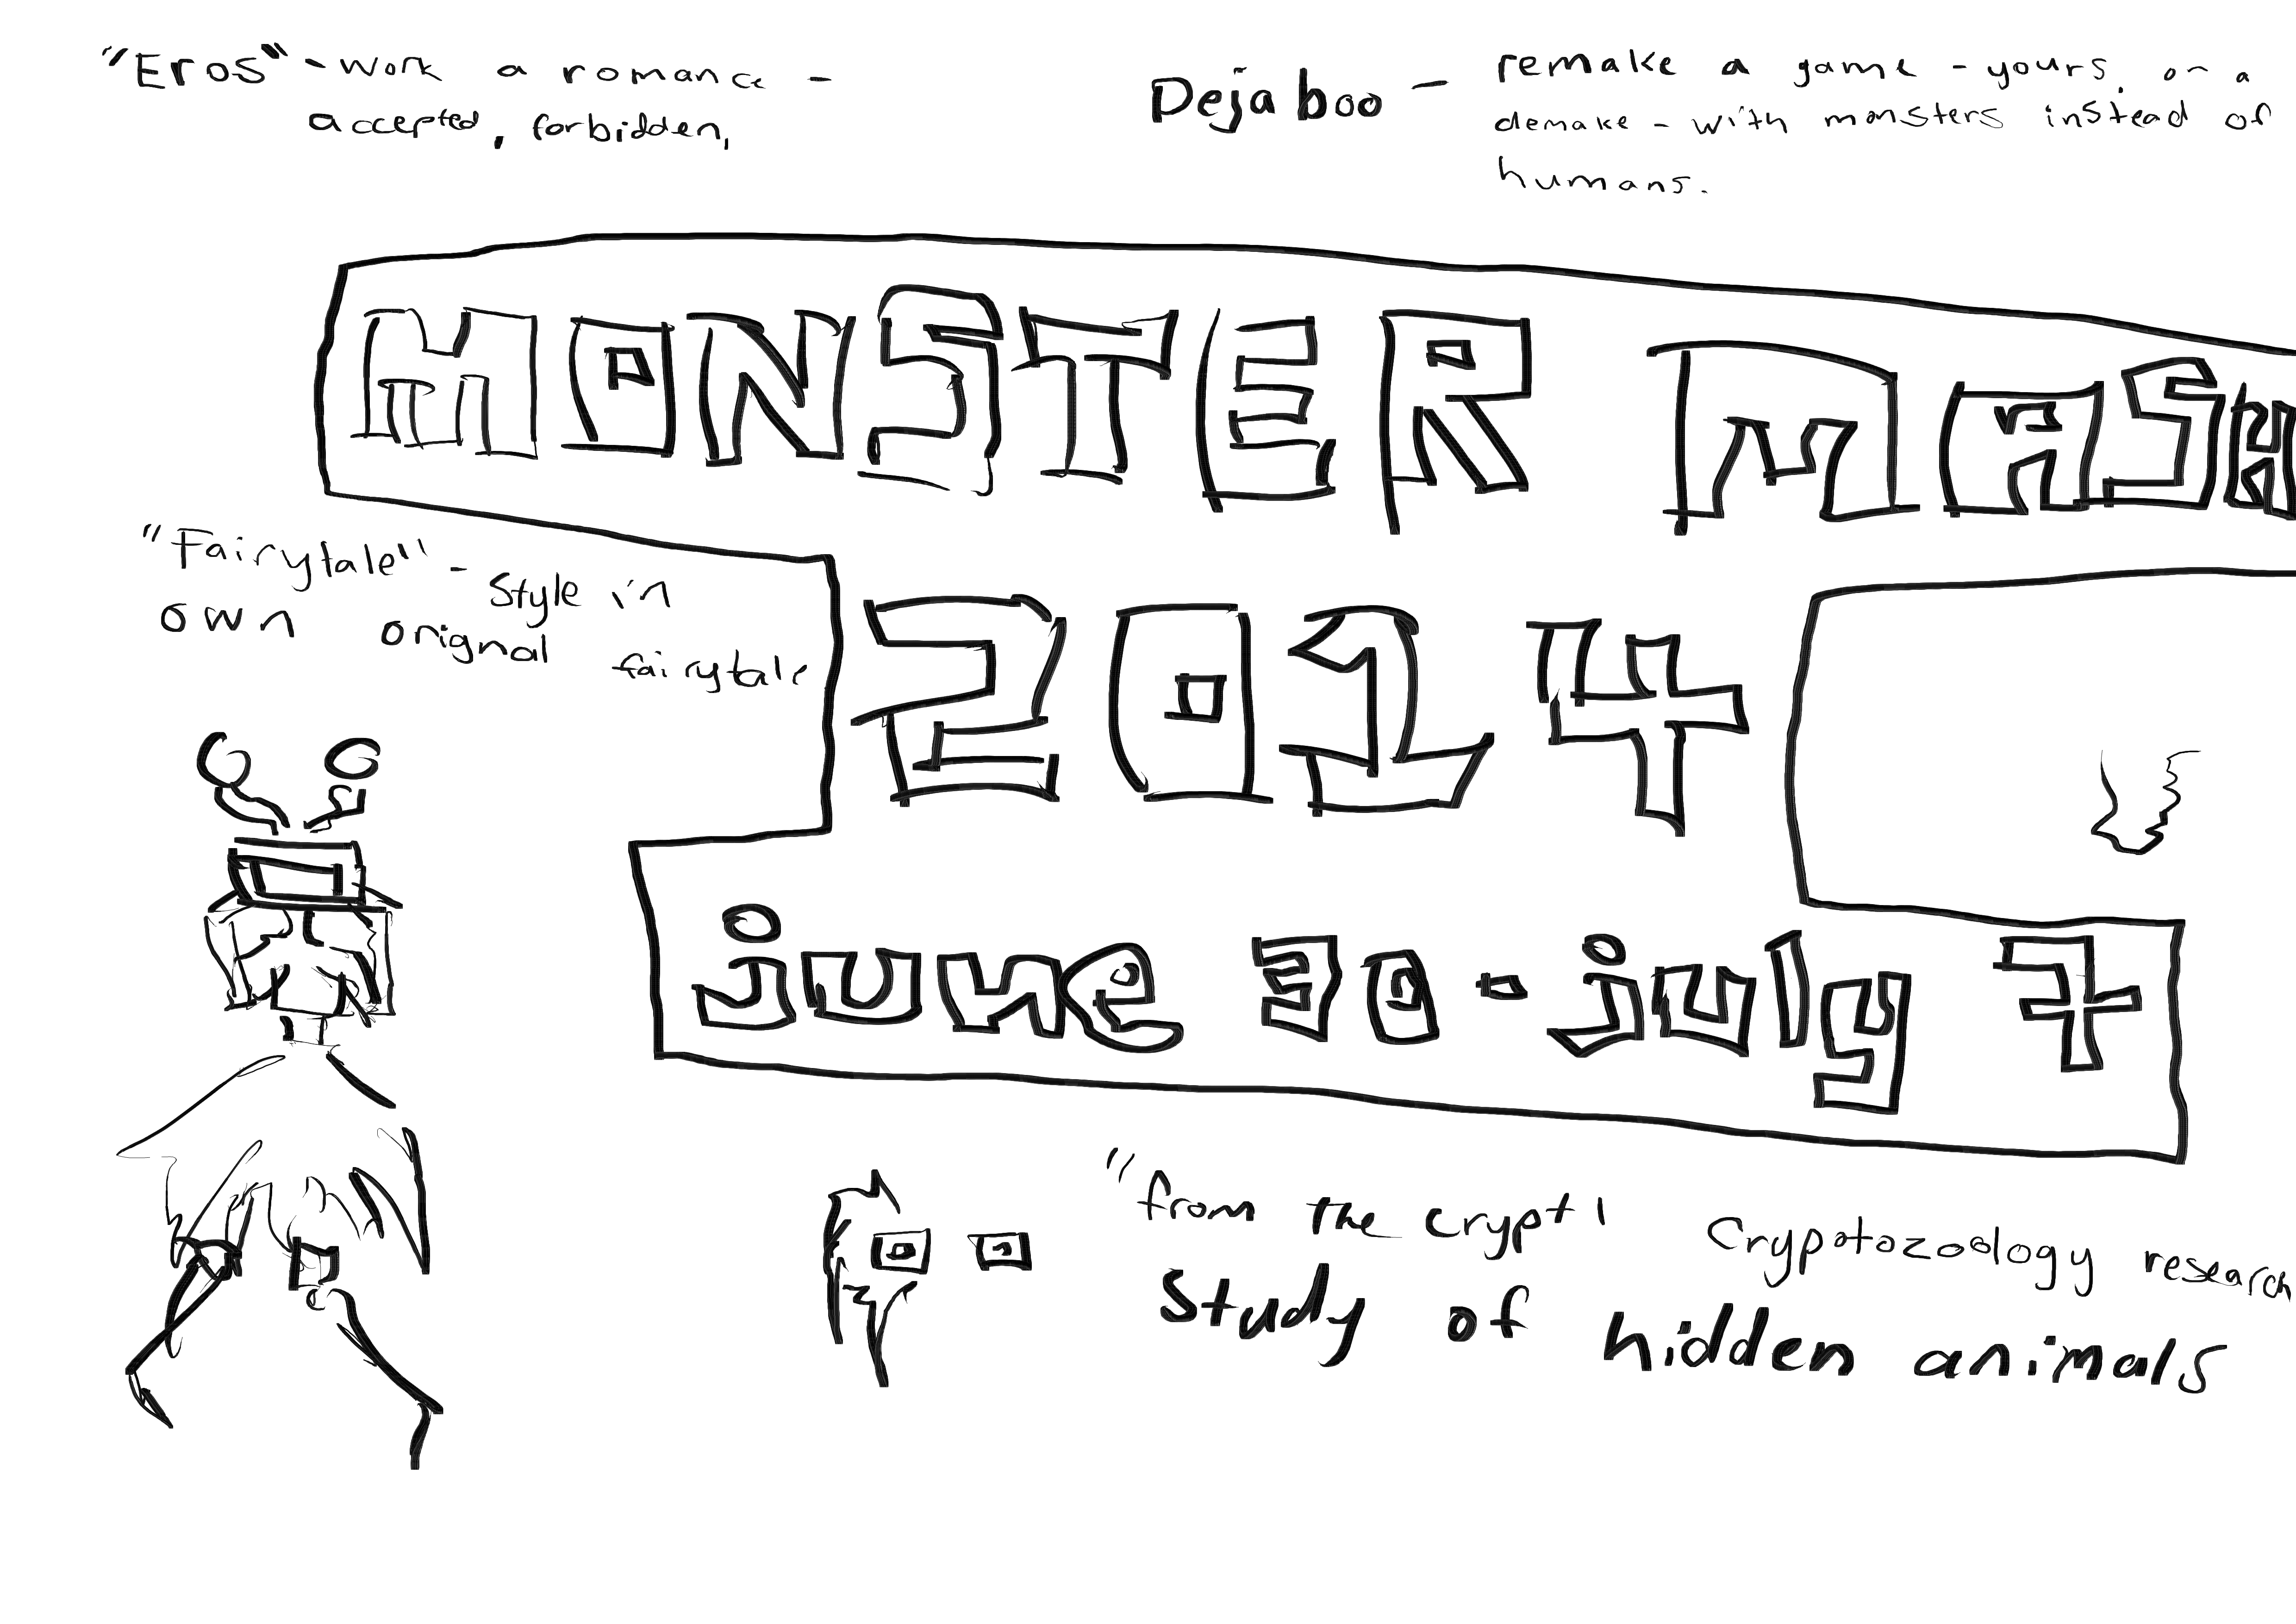 "Eros" - work a romance -
accepted, forbidden,
Dejaboo - remake a game - yours, or a
demake - with monsters instead of
humans.
MONSTER MASH
2014
june 30 - july 7
"Fairytale" - Style in
own orignal fairytale
"from the crypt" Cryptotozoology research
Study of hidden animals